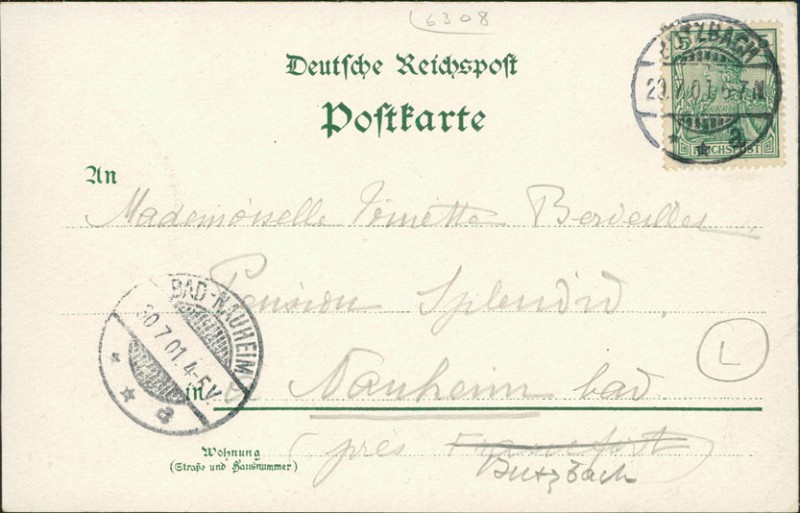 6308
Deutsche Reichspost
Postkarte
BUTZBACH
29.7.01.6-7N
a
REICHSPOST
An
Mademoiselle
Pension Splendid
BAD-NAUHEIM
30.7.01.4-5V.
a
L
in Nauheim bad
(près Francfort)
Butzbach
Wohnung
(Straße und Hausnummer)